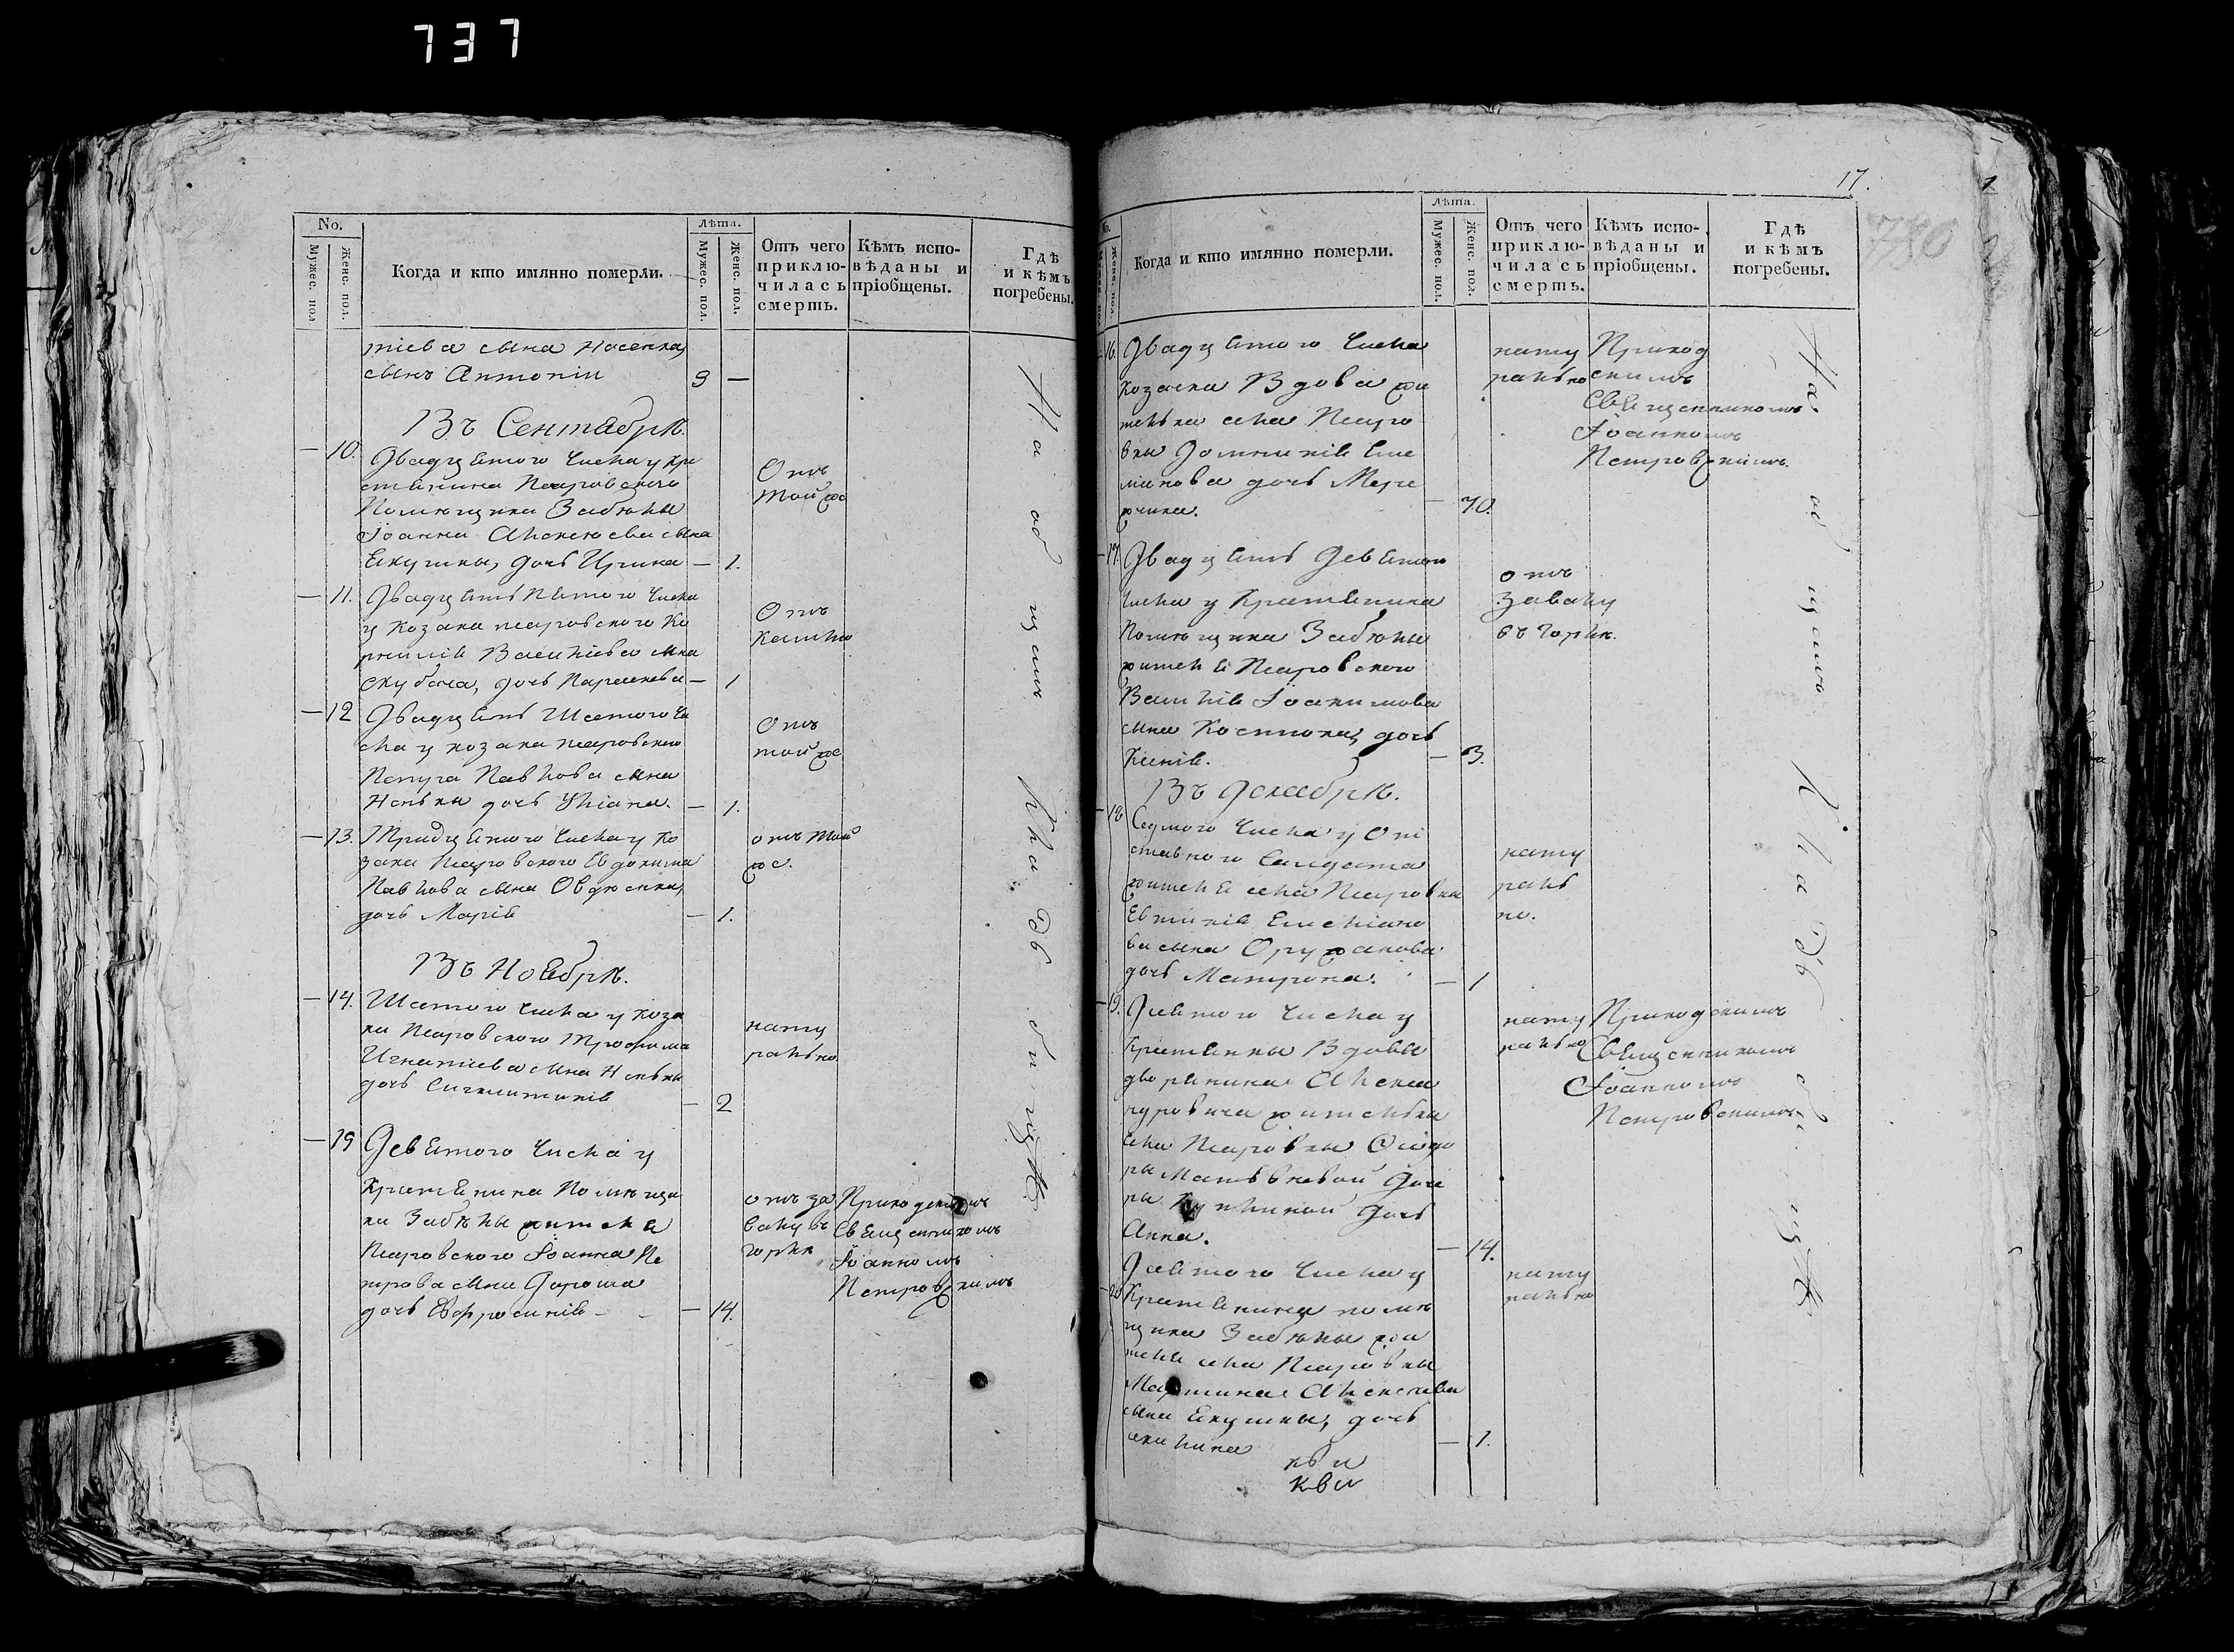 737
No.
Мужес. пол.
Женс. пол.
Когда и кто имянно померли.
Лѣта.
Мужес. пол.
Женс. пол.
Отъ чего
приклю-
чилась
смерть.
Кѣмъ испо-
вѣданы и
пріобщены.
Гдѣ
и кѣмъ
погребены.
тіева сына Носенка,
сынъ Антоній 9 —
Въ Сентябрѣ.
— 10. Двадцятого числа у кре
стянина Петровского
Помѣщика Забѣлы
Іоанна Алексѣева сына
Якушы, дочь Ирина — 1.
Отъ
той же
— 11. Двадцять пятого числа
у козака петровского Ко
рнилія Василіева сына
дочь Параскева — 1
Отъ
кашлю
— 12 Двадцять шестого чи
сла у козака петровского
Петра Павлова сына
дочь Уліана. — 1.
Отъ
той же
— 13. Тридцятого числа у ко
зака Петровского Евдокима
Павлова сына Овдѣенка,
дочь Марія — 1.
отъ той
же.
Въ Ноябрѣ.
— 14. Шестого числа у коза
ка Петровского Трофима
Игнатіева сына
дочь — 2
нату
рально
— 15 Девятого числа у
Крестянина Помѣщи
ка Забѣлы жителя
Петровского Іоанна Пе
трова сына Дороша
дочь Евфросинія — 14.
отъ за
валу въ
горлѣ
Приходскимъ
Священникомъ
Іоанномъ
Петровскимъ
На кладбищѣ
17.
780
No.
Женс. пол.
Когда и кто имянно померли.
Лѣта.
Мужес. пол.
Женс. пол.
Отъ чего
приклю-
чилась
смерть.
Кѣмъ испо-
вѣданы и
пріобщены.
Гдѣ
и кѣмъ
погребены.
— 16. Двадцятого числа
козачка Вдова жи
телька села Петро
вки Домникія
дочь
— 70.
нату
рально
Приход
скимъ
Священникомъ
Іоанномъ
Петровскимъ.
— 17. Двадцять девятого
числа у Крестянина
Помѣщика Забѣлы
жителя Петровского
Василія Іоакимова
сына дочь
Ксенія. — 3.
отъ
завалу
въ горлѣ.
Въ Декабрѣ.
— 18 Седмого числа у От
ставного Салдата
жителя села Петровки
Евтихія Емеліано
ва сына
дочь Матрона. — 1
нату
раль
но.
— 19. Девятого числа у
Крестянки Вдовы
дворянина Алекса
ндровича жительки
села Петровки Ѳеодо
ры Матвѣевой доче
ры дочь
Анна. — 14.
нату
рально
Приходскимъ
Священникомъ
Іоанномъ
Петровскимъ
20 Девятого числа у
Крестянина помѣ
щика Забѣлы жи
теля села Петровки
Мартина Алексѣева
сына Якушы, дочь
акилина — 1.
нату
рально
На кладбищѣ